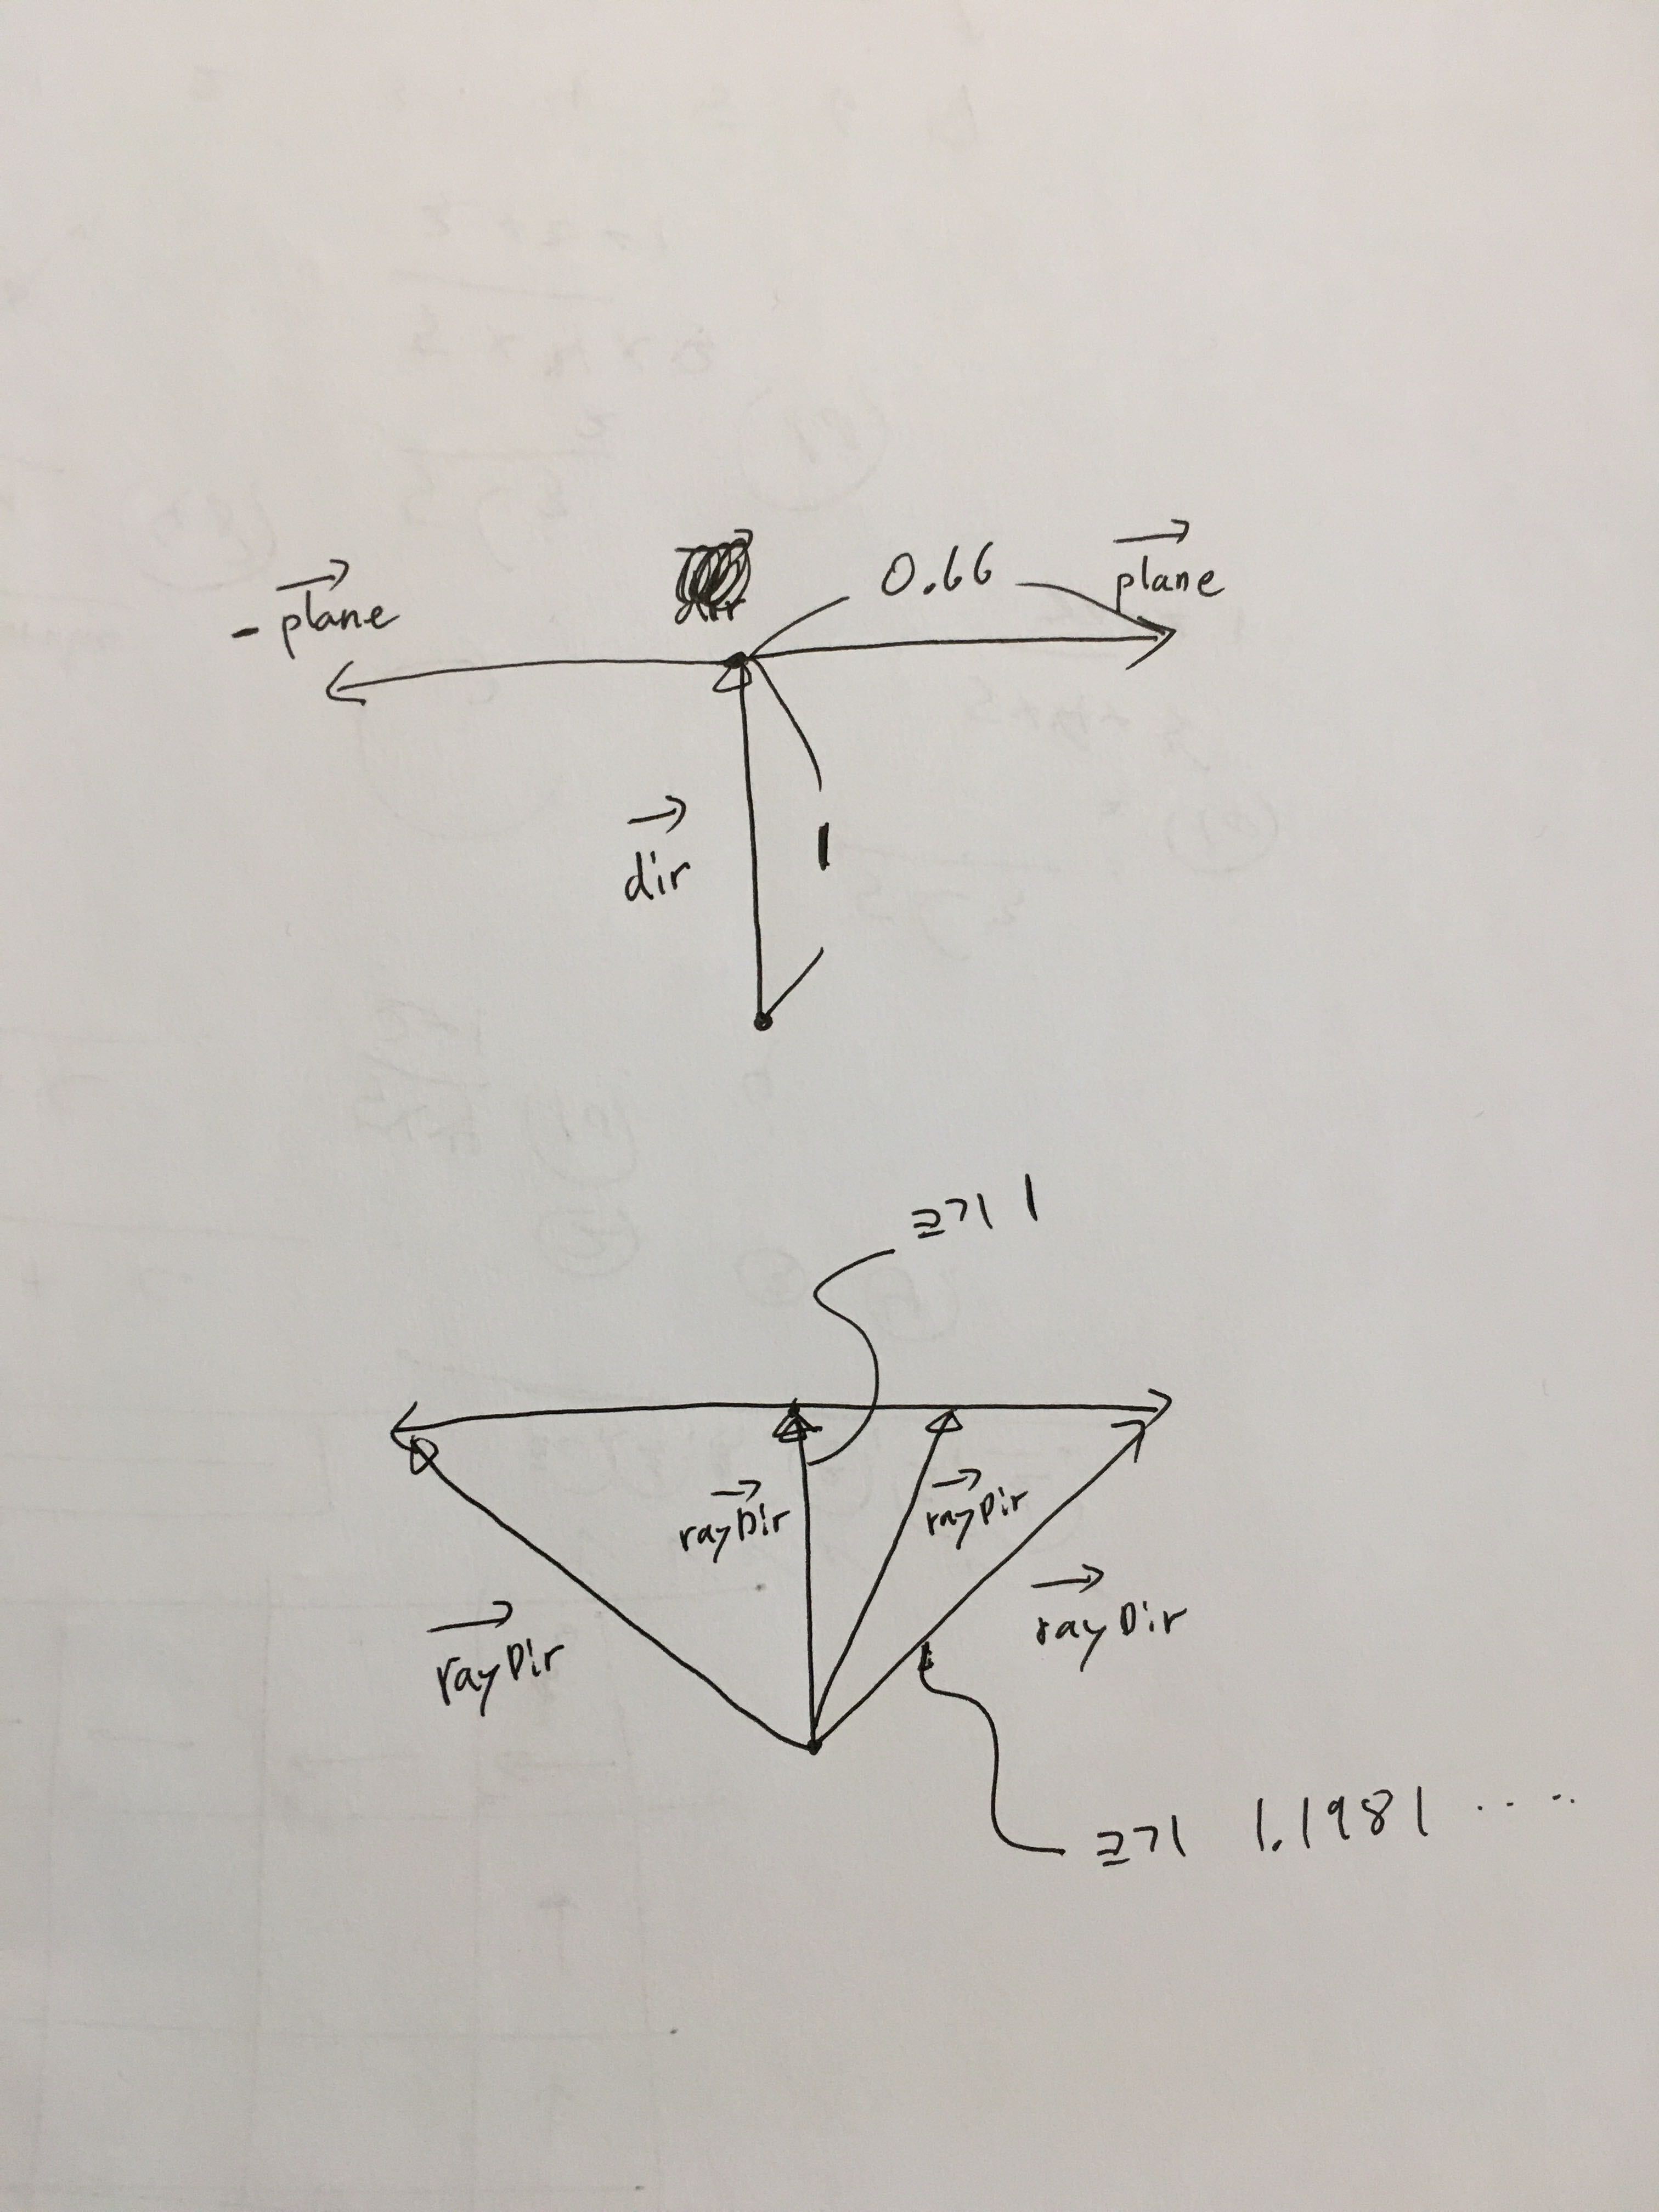 0.66
plane
- plane
dir
1
크기 1
rayDir
rayDir
rayDir
rayDir
크기 1.1981 .....